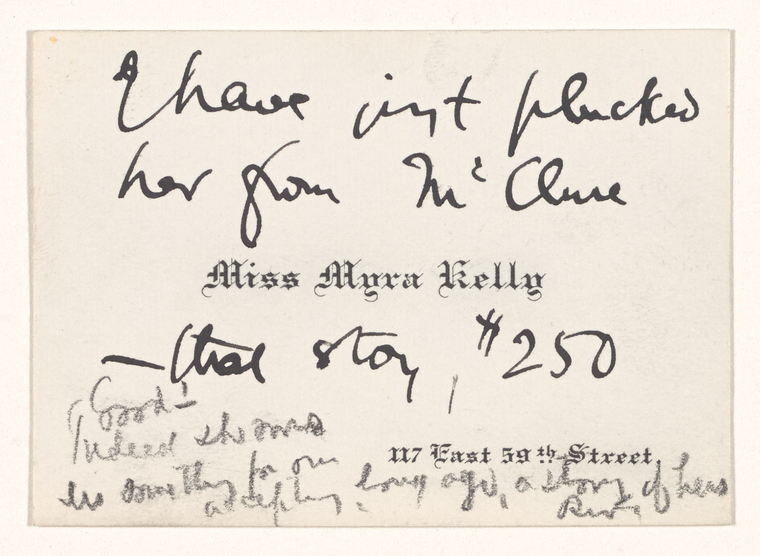 I have just plucked
her from McClure
Miss Myra Kelly
— that story, $250
Good!
Indeed she owes
us something for our
117 East 59th Street.
accepting, long ago, a story of hers